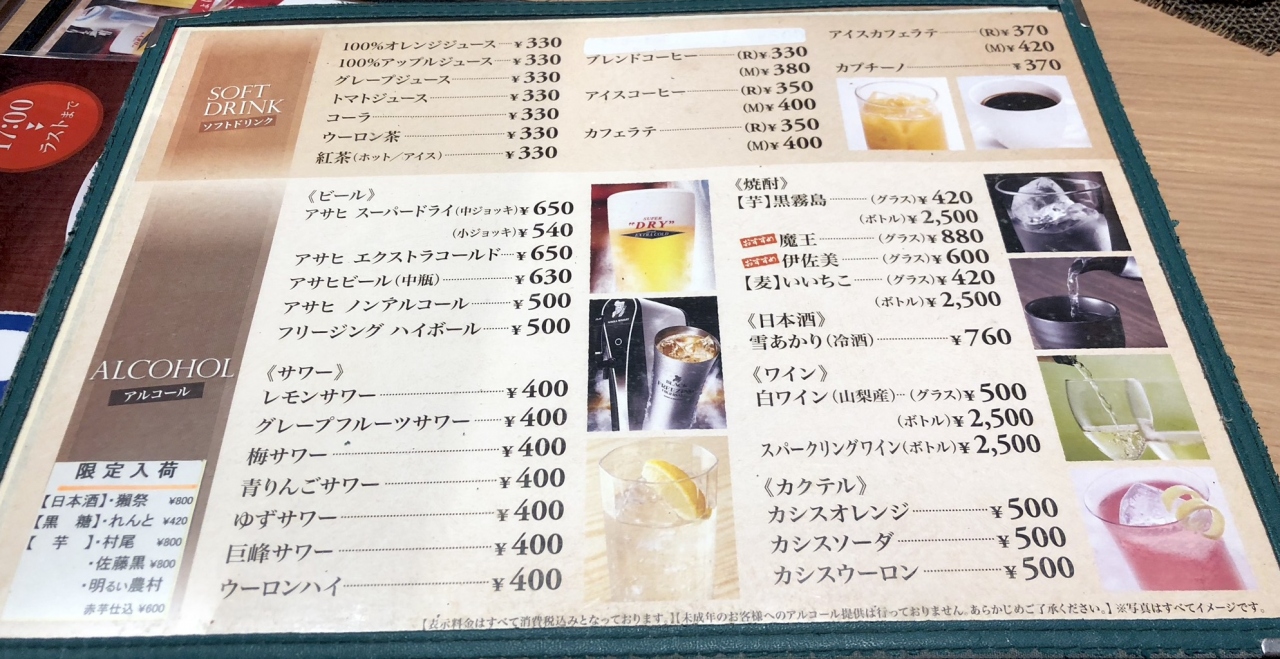 17:00
ラストまで
SOFT
DRINK
ソフトドリンク
100%オレンジジュース ¥330
100%アップルジュース ¥330
グレープジュース ¥330
トマトジュース ¥330
コーラ ¥330
ウーロン茶 ¥330
紅茶(ホット／アイス) ¥330
ブレンドコーヒー (R)¥330
(M)¥380
アイスコーヒー (R)¥350
(M)¥400
カフェラテ (R)¥350
(M)¥400
アイスカフェラテ (R)¥370
(M)¥420
カプチーノ ¥370
ALCOHOL
アルコール
《ビール》
アサヒ スーパードライ(中ジョッキ)¥650
(小ジョッキ)¥540
アサヒ エクストラコールド ¥650
アサヒビール(中瓶) ¥630
アサヒ ノンアルコール ¥500
フリージング ハイボール ¥500
《サワー》
レモンサワー ¥400
グレープフルーツサワー ¥400
梅サワー ¥400
青りんごサワー ¥400
ゆずサワー ¥400
巨峰サワー ¥400
ウーロンハイ ¥400
SUPER
"DRY"
《焼酎》
【芋】黒霧島 (グラス)¥420
(ボトル)¥2,500
おすすめ 魔王 (グラス)¥880
おすすめ 伊佐美 (グラス)¥600
【麦】いいちこ (グラス)¥420
(ボトル)¥2,500
《日本酒》
雪あかり(冷酒) ¥760
《ワイン》
白ワイン(山梨産) (グラス)¥500
(ボトル)¥2,500
スパークリングワイン(ボトル)¥2,500
《カクテル》
カシスオレンジ ¥500
カシスソーダ ¥500
カシスウーロン ¥500
限定入荷
【日本酒】・獺祭 ¥800
【黒 糖】・れんと ¥420
【 芋 】・村尾 ¥800
・佐藤黒 ¥800
・明るい農村
赤芋仕込 ¥600
【表示料金はすべて消費税込みとなっております。】【未成年のお客様へのアルコール提供は行っておりません。あらかじめご了承ください。】※写真はすべてイメージです。